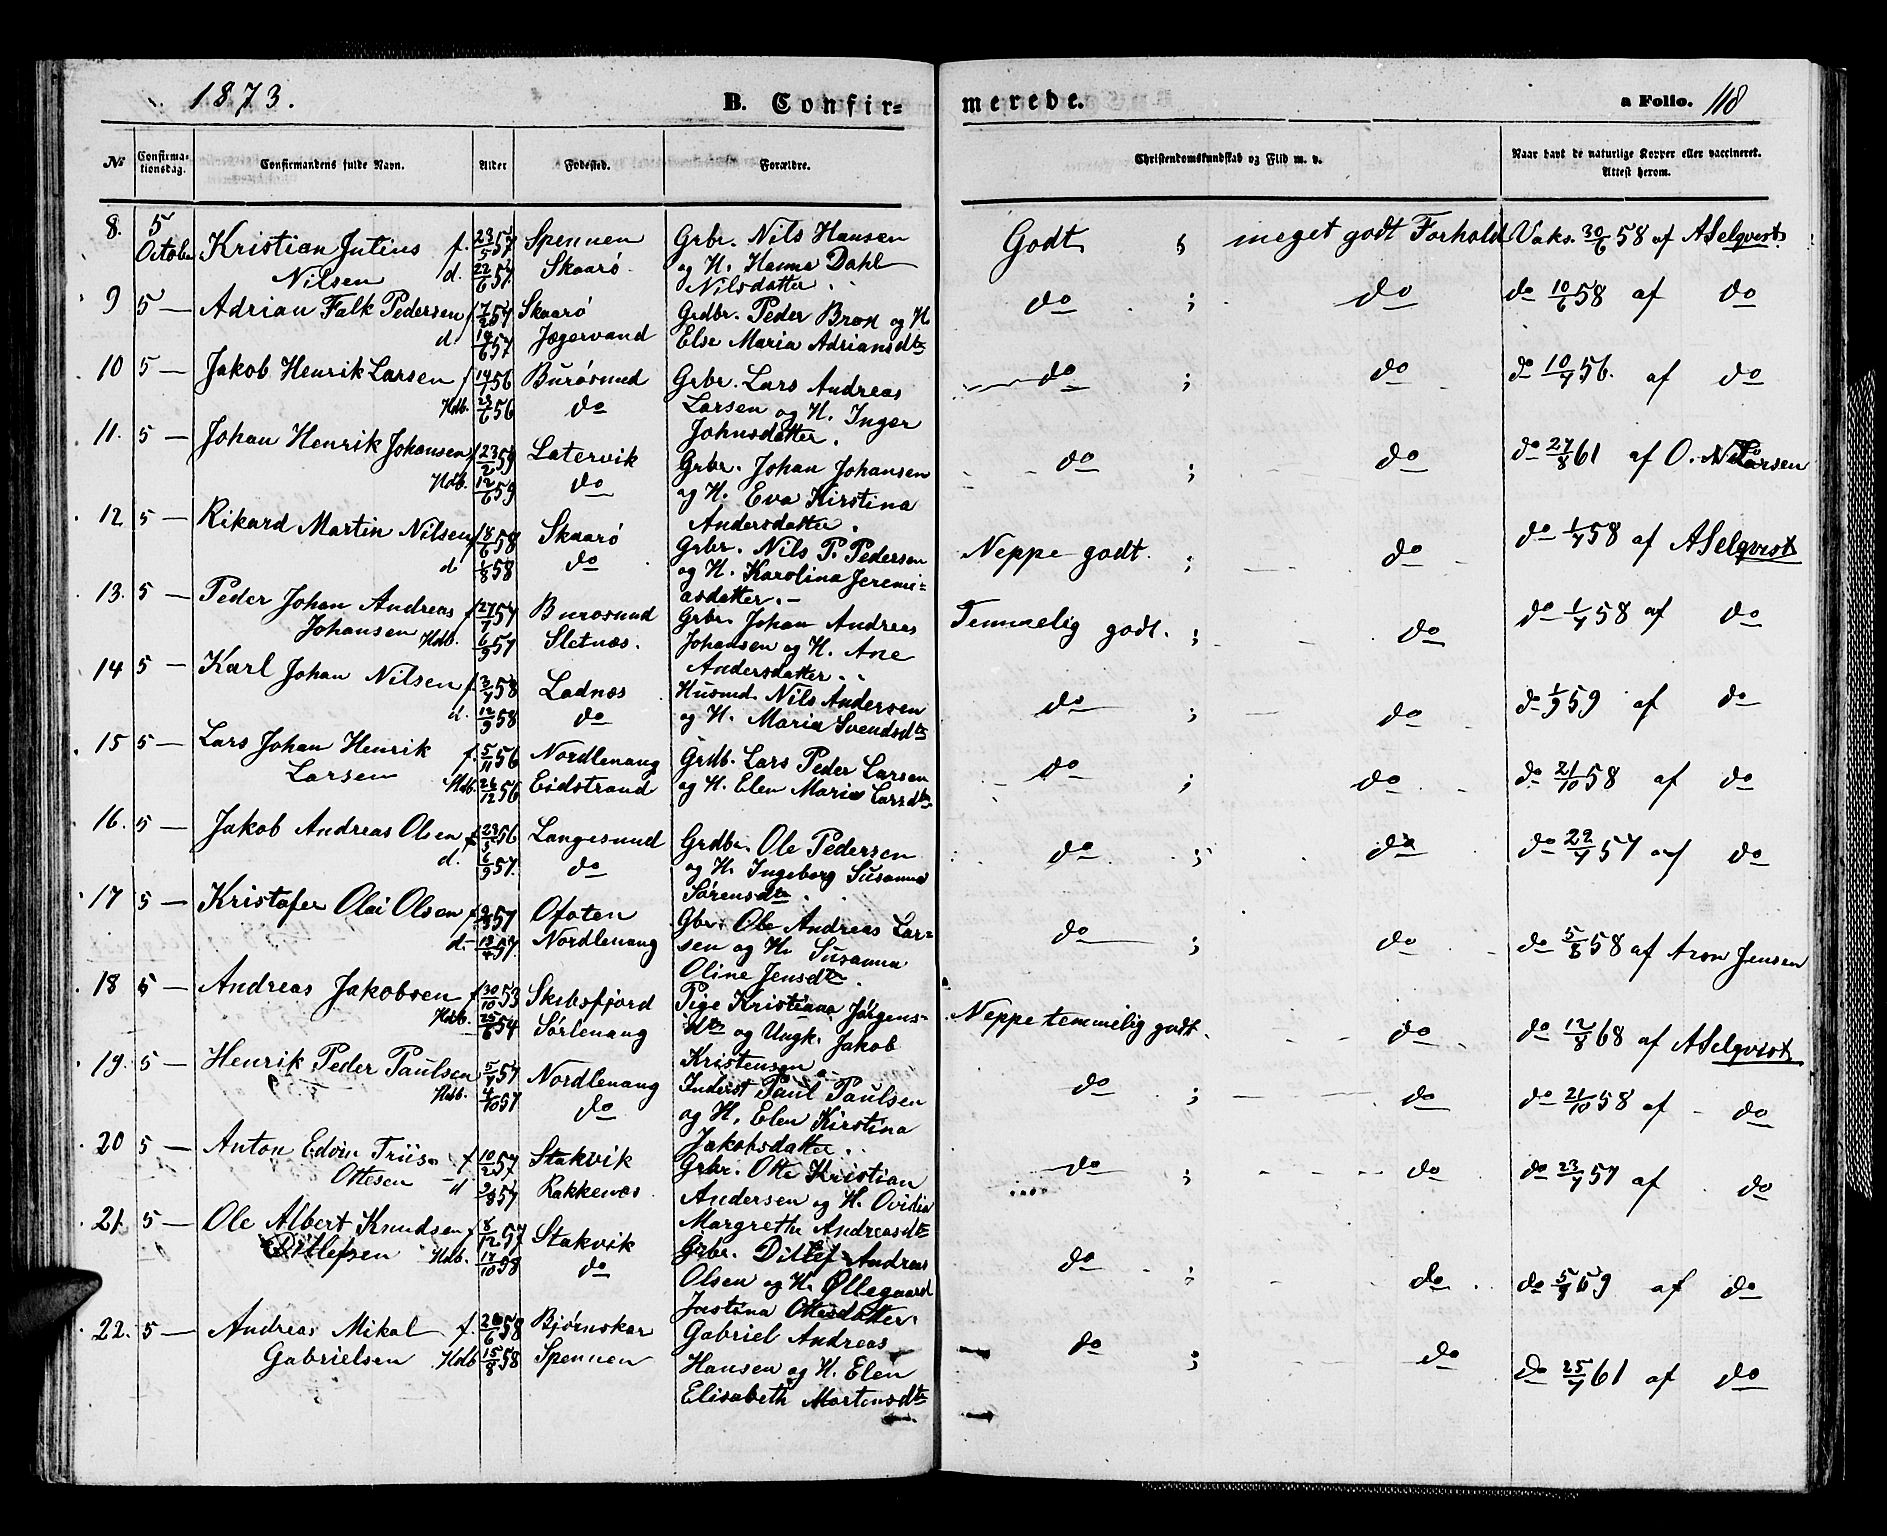 1873. B. Confir=
merede. a Folio. 118
No Confirmationsdag. Confirmandens fulde Navn. Alder Fødested. Forældre. Christendomskundskab og Flid m. v. Naar havt de naturlige Kopper eller vaccineret. Attest herom.
8. 5 October Kristian Julius Nilsen f. 23/5 57 d. 22/6 57 Spennen Skaarø Grbr. Nils Hansen og H. Hanna Dahl Nilsdatter. Godt ; meget godt Forhold Vaks. 30/6 58 af ASelqvist
9 5 — Adrian Falk Pedersen f. 57 d. 14/6 57 Skaarø Jægervand Grdbr. Peder Brox og H. Else Maria Adriansdtr do ; do do 10/6 58 af do
10 5 — Jakob Henrik Larsen f. 14/ 56 Hdb. 23/6 56 Burøsund do Grbr. Lars Andreas Larsen og H. Inger Johnsdatter. do ; do do 10/7 56. af do
11. 5 — Johan Henrik Johansen f. 23/2 59 Hdb. 12/6 59 Latervik do Grbr. Johan Johansen og H. Eva Kirstina Andersdatter. do ; do do 27/8 61 af O. Larsen
12 5 — Rikard Martin Nilsen f. 18/6 58 d. 1/8 58 Skaarø do Grbr. Nils P. Pedersen og H. Karolina Jeremi=asdatter.— Neppe godt. ; do do 1/7 58 af ASelqvist
13. 5 — Peder Johan Andreas Johansen f. 27/7 57 Hdb. 6/9 57 Burøsund Sletnæs. Grbr. Johan Andreas Johansen og H. Ane Andersdatter. Temmelig godt. ; do do 1/7 58 af do
14 5 — Karl Johan Nilsen f. 3/7 58 d. 12/9 58 Ladnæs do Husmd. Nils Andersen og H. Maria Svendsdtr do ; do do 1/9 59 af do
15 5 — Lars Johan Henrik Larsen f. 5/11 56 Hdb. 26/12 56 Nordlenang Eidstrand Grdb. Lars Peder Larsen og H. Elen Maria Larsdtr do ; do do 21/10 58 af do
16. 5 — Jakob Andreas Olsen f. 23/ 56 d. 6/9 57. Langesund do Grdbr. Ole Pedersen og H. Ingeborg Susanna Sørensdtr. do ; do do 22/7 57 af do
17 5 — Kristofer Olai Olsen f. 57 d. 57. Ofoten Nordlenang Gbr. Ole Andreas Lar=sen og H. Susanna Oline Jensdtr. do ; do do 5/8 58 af Aron Jensen
18 5 — Andreas Jakobsen f. 30/10 53 Hdb. 25/6 54 Skibsfjord Sørlenang Pige Kristiana Jørgens=dtr og Ungk. Jakob Kristensen Neppe temmelig godt. do do 12/8 68 af ASelqvist
19. 5 — Henrik Peder Paulsen 5/7 57 Hdb. 4/10 57 Nordlenang do Inderst Paul Paulsen og H. Elen Kirstina Jakobsdatter. do ; do do 21/10 58 af do
20 5 — Anton Edvin Friis Ottesen f. 10/2 57 d 9/8 57 Stakvik Rakkenæs Grbr. Otte Kristian Andersen og H. Ovidia Margrethe Andreasdtr do ; do do 23/7 57 af do
21. 5 — Ole Albert Knudsen Ditlefsen f. 8/12 57 Hdb. 17/10 58 Stakvik do Grbr. Ditlef Andreas Olsen og H. Øllegaard Justina Ottesdatter. do ; do do 5/9 69 af do
22. 5 — Andreas Mikal Gabrielsen f. 26/6 58 Hdb 15/8 58 Bjørnskar Spennen Gabriel Andreas Hansen og H. Elen Elisabeth Mortensdtr do ; do do 25/7 61 af do